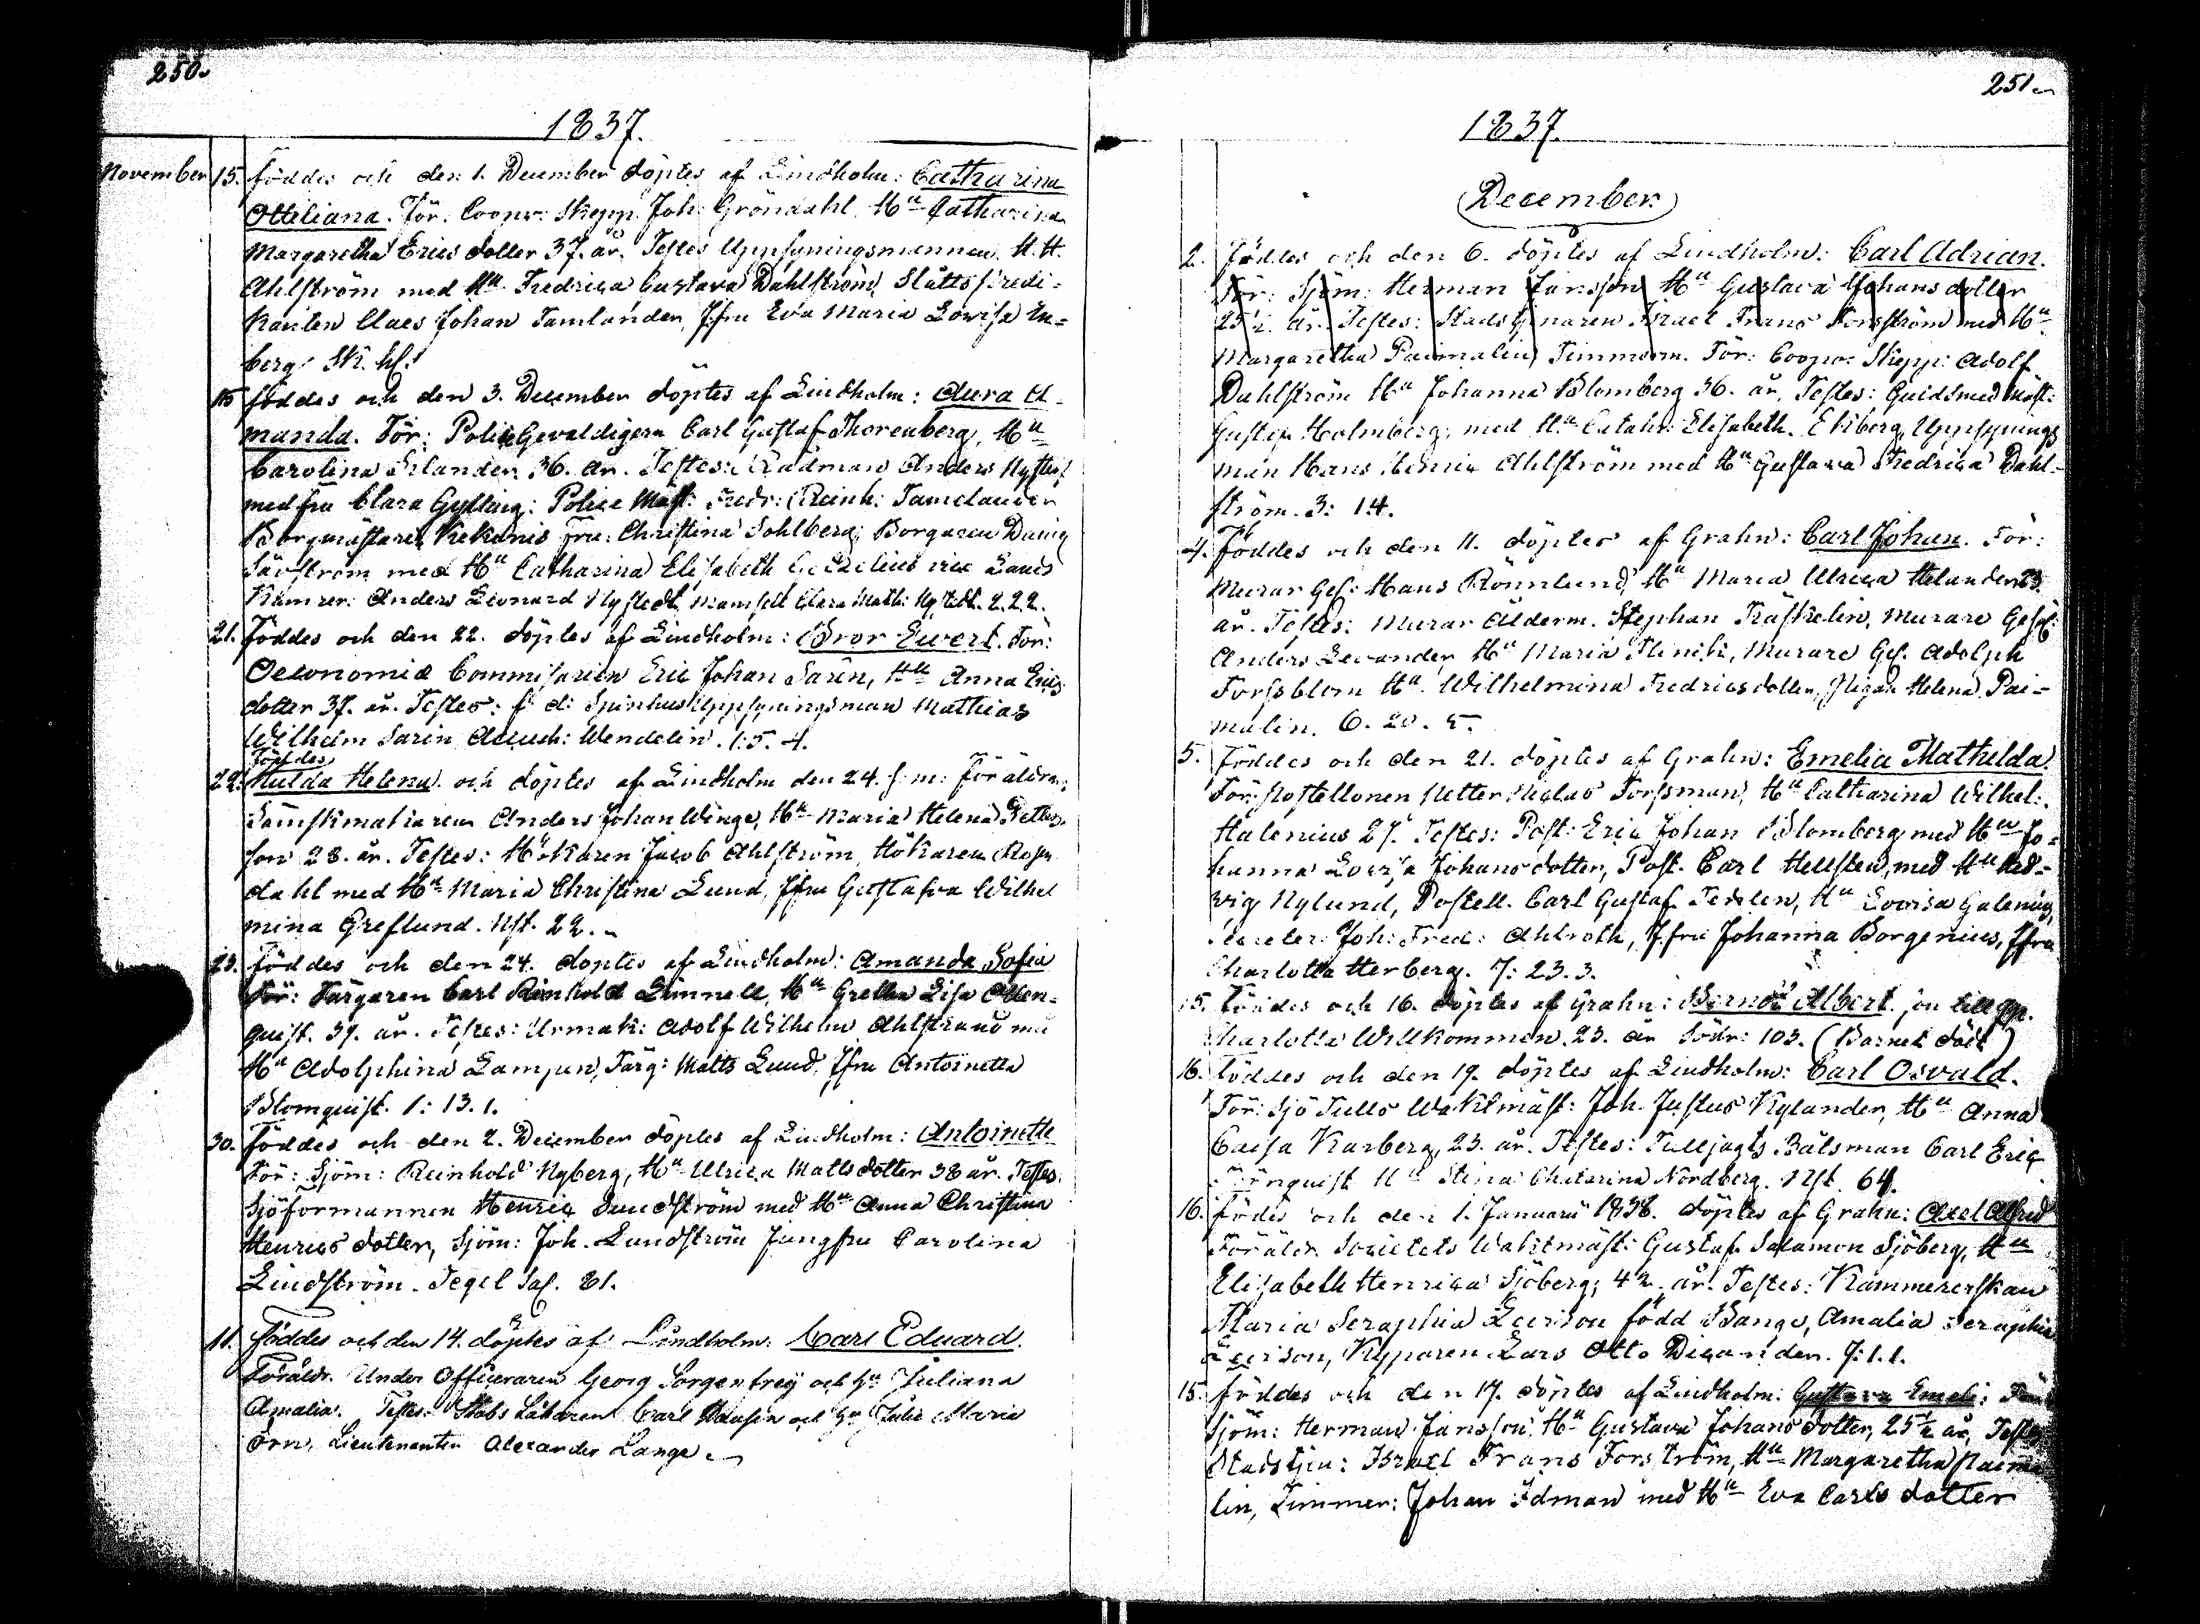 250.
1837.
November 15. föddes och den 1. December döptes af Lindholm: Catharina
Otteliana. För. Coopv: Skepp. Joh: Gröndahl, Hu Catharina
Margaretha Erics dotter 37. år. Testes Uppsyningsmannen H. H.
Ahlström med Hu Fredrica Gustava Dahlström, Slåttspredi-
kanten Claes Johan Tamlander, Jfru Eva Maria Lovisa En-
berg.
15 föddes och den 3. December döptes af Lindholm: Aura A-
manda. För: Police Gevaldigern Carl Gustaf Thorenberg, Hu
Carolina Erlander 36. år. Testes: Rådman Anders
med fru Clara Gylling: Police Mäst: Fredr: Reinh: Tamelander
Borgmästare Kekonis Fru: Christina Sohlberg, Borgaren
Säfström med Hu Catharina Elisabeth
Kamrer: Anders Leonard Nystedt, Mamsell Clara Math: Nystedt. 2.2.2.
21. föddes och den 22. döptes af Lindholm: Bror Evert. För:
Oeconomie Commissarien Eric Johan Sarin, Hu Anna Erics
dotter 37. år. Testes: f d: Spinhus Uppsyningsman Mathias
Wilhelm Sarin, Wendelin. 1:5.4.
föddes
22. Hulda Helena och döptes af Lindholm den 24. s: m: föräldra:
Sämskmakaren Anders Johan Winge, Hu Maria Helena Petters-
son 28. år. Testes: Hökaren Jacob Ahlström, Hökaren Rosen
dahl med Hu Maria Christina Lund, Jfru Gustafva Wilhel
mina Greflund. Nst. 22.
23. föddes och den 24. döptes af Lindholm: Amanda Sofia
För: Färgaren Carl Reinhold Linnell, Hu Gretha Lisa
quist. 37. år. Testes: Urmak: Adolf Wilhelm Ahlstrand med
Hu Adolphina Lampen, Färg: Matts Lund, Jfru Antoinetta
Blomquist. 1: 13. 1.
30. föddes och den 2. December döptes af Lindholm: Antoinette
För: Sjöm: Reinhold Nyberg, Hu Ulrica Matts dotter 38 år. Testes.
Sjöformannen Henric Lundström med Hu Anna Christina
Henrics dotter, Sjöm: Joh. Lundström Jungfru Carolina
Lindström. Tegel Sal. 81.
11. föddes och den 14. döptes af Lindholm: Carl Eduard.
Föräldr. Under Officeraren Georg Sorgenfrey och Hu Juliana
Amalia. Testes: Stabs Läkaren Carl och Hu Julie Maria
Örn, Lieutenanten Alexander Lange.
251.
1837.
December.
2. föddes och den 6. döptes af Lindholm: Carl Adrian.
För: Sjöm: Herman Jansson Hu Gustava Johans dotter
25½ år. Testes: Stadstjenaren Israel Frans Forsström med Hu
Margaretha Paimalin, Timmerm. För: Coopv: Skepp: Adolf
Dahlström Hu Johanna Blomberg 36. år, Testes: Guldsmed Mäst:
Gustaf Holmberg, med Hu Cathr: Elisabeth Ekberg, Uppsynings
man Hans Henric Ahlström med Hu Gustava Fredrica Dahl-
ström. 3: 14.
4. föddes och den 11. döptes af Grahn: Carl Johan. För:
Murar Ges: Hans Rönnlund, Hu Maria Ulrica Helander 23
år. Testes: Murar Ålderm. Stephan Träskelin, Murare Gesel:
Anders Levander Hu Maria Flinck, Murare Ges. Adolph
Forssblom Hu Wilhelmina Fredrics dotter, Pigan Helena Pai-
malin. 6. 20. 5.
5. föddes och den 21. döptes af Grahn: Emelia Mathilda.
För: Postellonen Petter Niclas Forssman, Hu Catharina Wilhel:
Halenius 27. Testes: Post: Eric Johan Blomberg med Hu Jo-
hanna Lovisa Johans dotter, Post. Carl Hellsten, med Hu Hed-
vig Nylund, Postell. Carl Gustaf Hu Lovisa Galenius,
Joh: Fred: Ahlroth, Jfru Johanna Borgenius, Jfru
Charlotta Herberg. 7: 23. 3.
15. föddes och 16. döptes af Grahn: Bernd Albert, son till Pig.
Charlotta Willkommen. 23. år Södr: 103. (Barnet dödt)
16. föddes och den 19. döptes af Lindholm: Carl Osvald.
För: Sjö Tulls Waktmäst: Joh. Justus Kylander, Hu Anna
Caisa Karberg, 23. år. Testes: Tulljagts Båtsman Carl Eric
Hu Stina Chatarina Nordberg. Nst. 64.
16. födes och den 1. Januarii 1838. döptes af Grahn: Axel Alfred
Föräldr. Societets Waktmäst: Gustaf Salamon Sjöberg, Hu
Elisabeth Henrica Sjöberg, 42. år. Testes: Kammererskan
Maria Seraphia född Bange, Amalia Seraphia
Kyparen Lars Otto Dicander. 7. 1. 1.
15. föddes och den 17. döptes af Lindholm: Gustava Emeli: För:
Sjöm: Herman Jansson, Hu Gustava Johans dotter, 25½ år, Testes
Stadstjen: Israel Frans Forsström, Hu Margaretha Paima
lin, Timmer: Johan Idman med Hu Eva Carls dotter